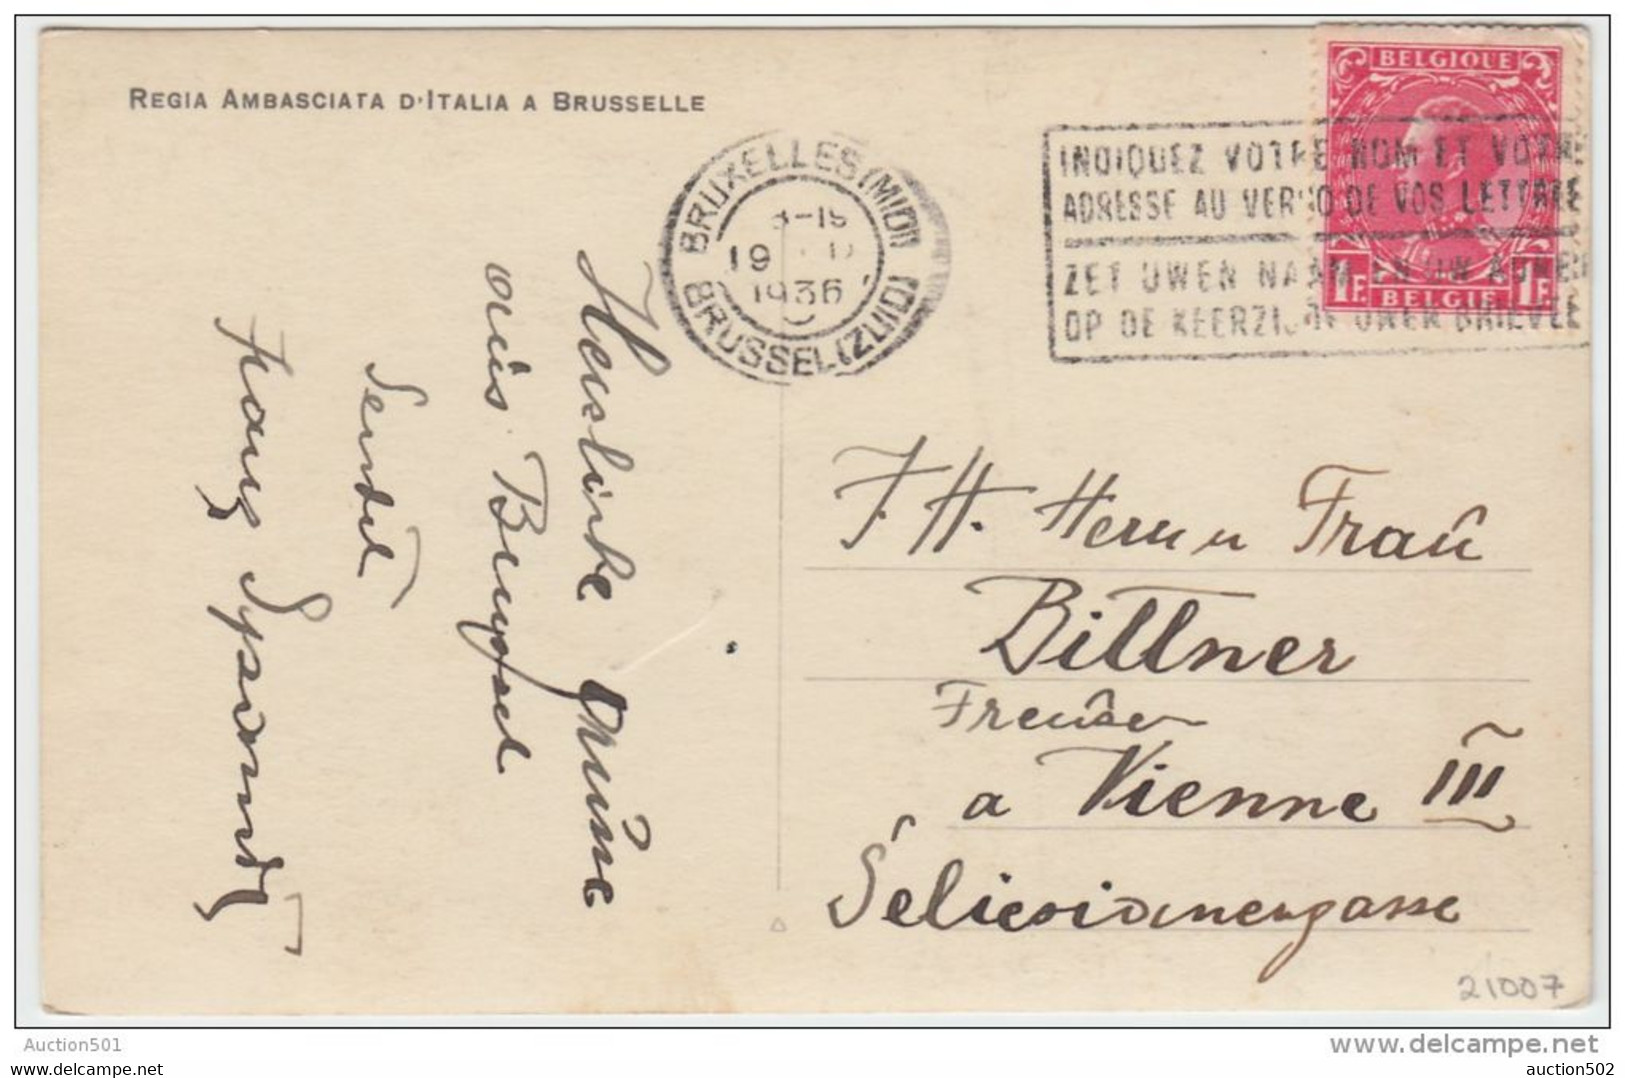 REGIA AMBASCIATA D'ITALIA A BRUSSELLE
BRUXELLES (MIDI)
19
1936
BRUSSEL (ZUID)
INDIQUEZ VOTRE NOM ET VOTRE
ADRESSE AU VERSO DE VOS LETTRES
ZET UWEN NAAM EN UW ADRES
OP DE KEERZIJDE UWER BRIEVEN
BELGIQUE
1F BELGIE 1F
Herzliche Grüsse
aus Brüssel
Sendet
Franz
Herrn u Frau
Bittner
a Vienne III
21007
Auction501
www.delcampe.net
auction502